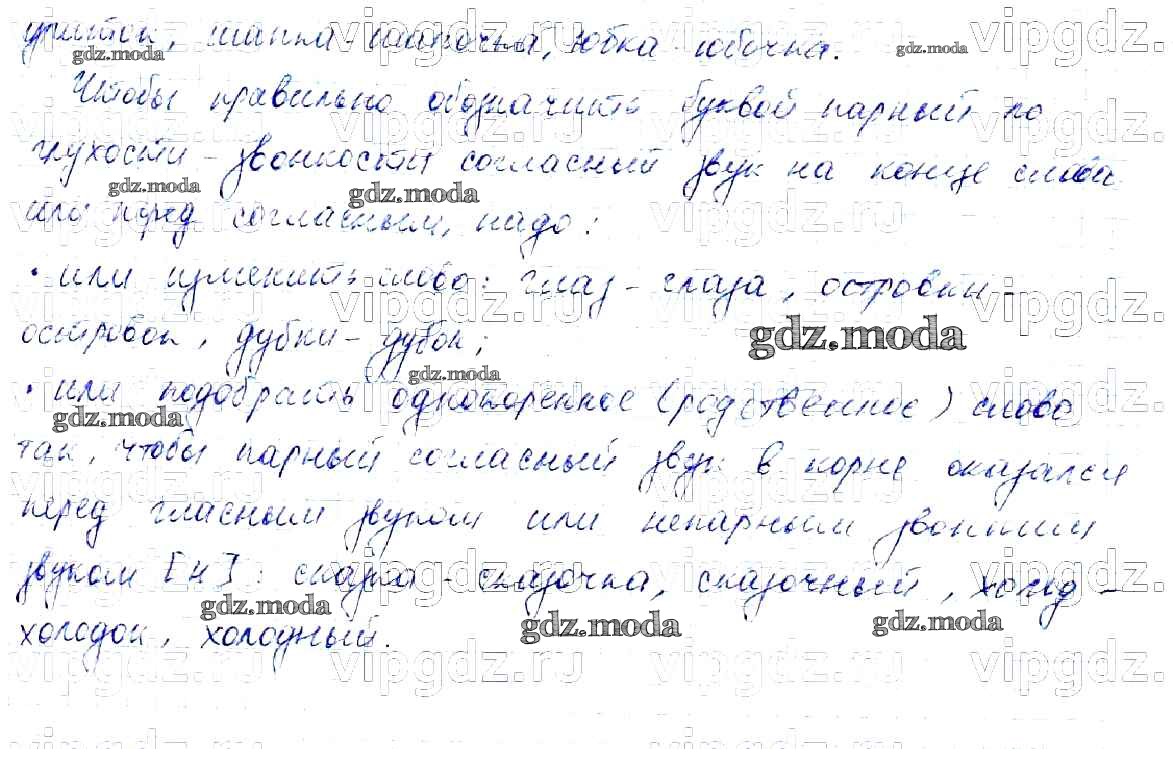 шапка - шапочка, юбка - юбочка.
Чтобы правильно обозначить буквой парный по
глухости - звонкости согласный звук на конце слова
или перед согласным, надо:
• или изменить слово: глаз - глаза, островки -
островок, дубки - дубок;
• или подобрать однокоренное (родственное) слово
так, чтобы парный согласный звук в корне оказался
перед гласным звуком или непарным звонким
звуком [н]: сказка - сказочка, сказочный, холод -
холодок, холодный.